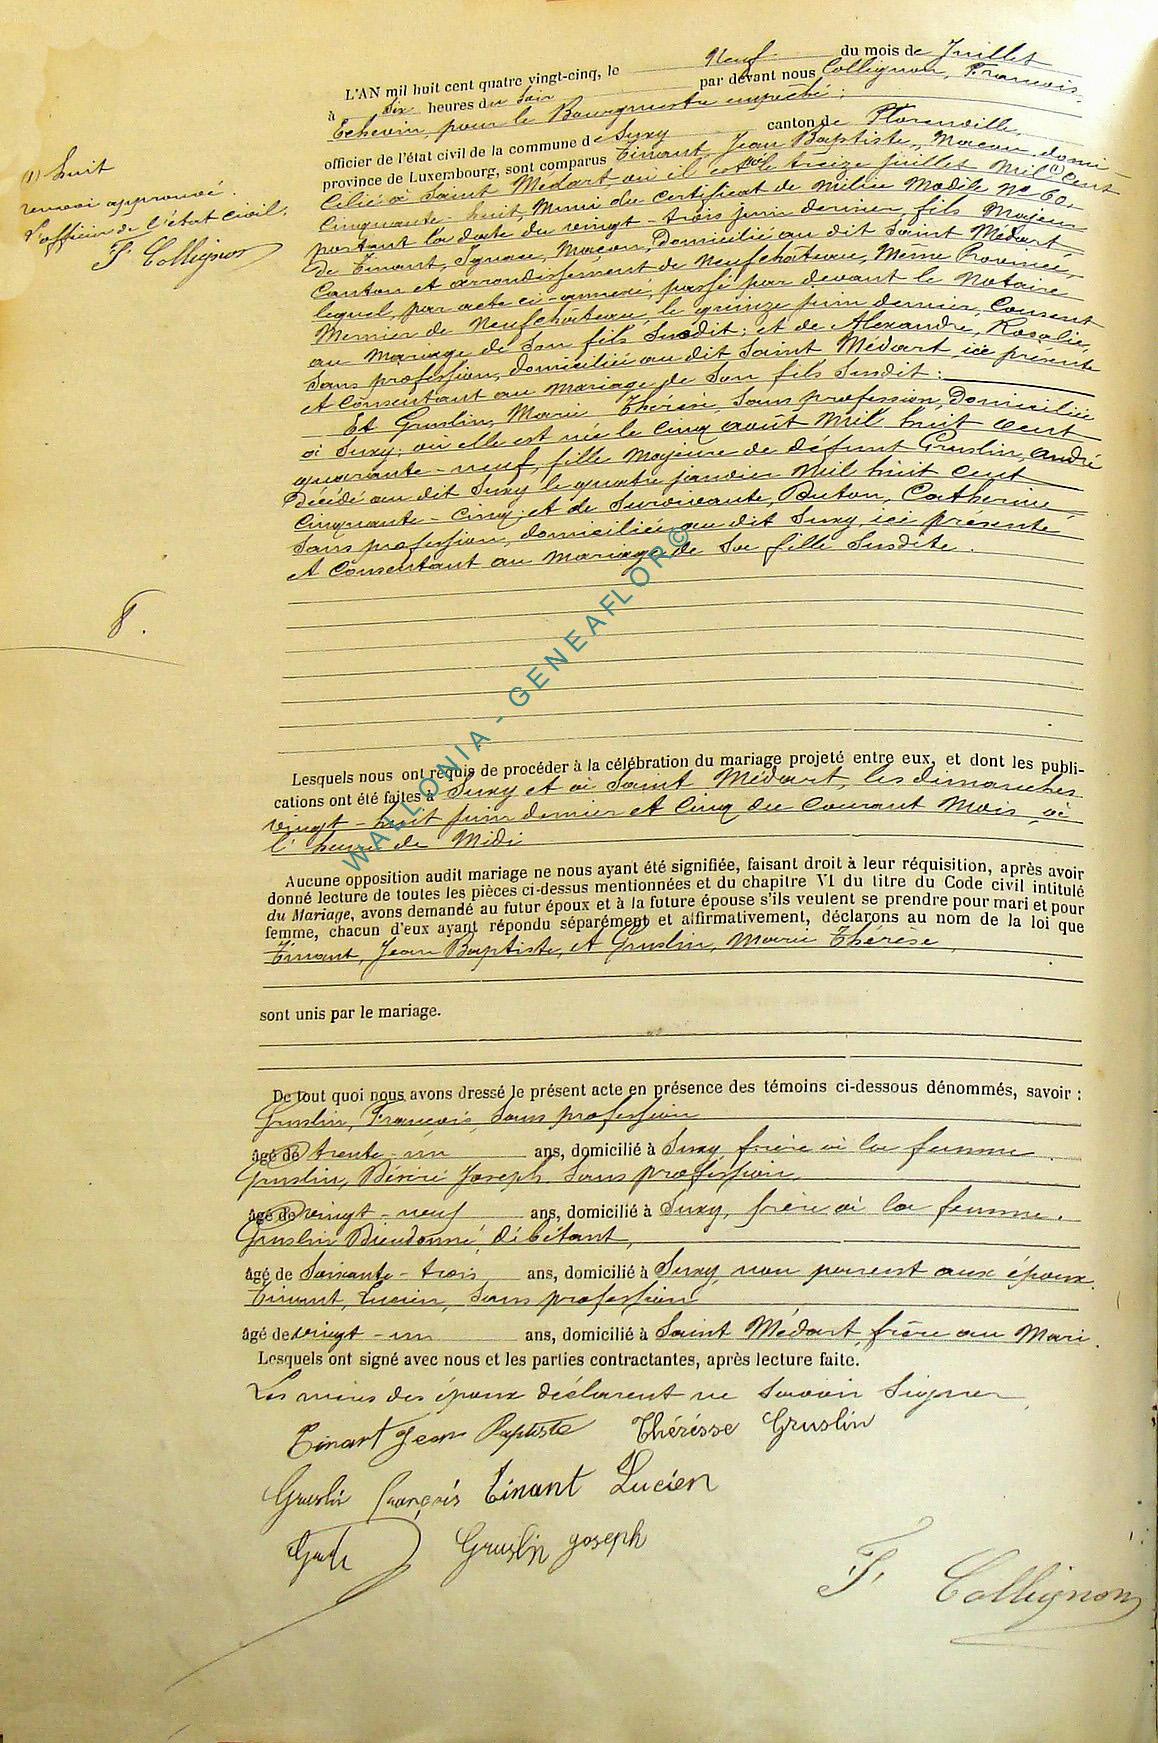 L'AN mil huit cent quatre vingt-cinq, le neuf du mois de Juillet
à dix heures du soir par devant nous Collignon, François,
Echevin, pour le Bourgmestre empêché;
officier de l'état civil de la commune de Suxy canton de Florenville
province de Luxembourg, sont comparus Tinant, Jean Baptiste, Maçon, domi-
cilié à Saint Médart, où il est né le treize juillet Mil (1) Cent
Cinquante-huit, Muni du certificat de milice Modèle No 60,
portant la date du vingt-trois juin dernier, fils Majeur
de Tinant, Ignace, Maçon, Domicilié au dit Saint Médart
Canton et arrondissement de Neufchâteau, Même Province,
lequel, par acte ci-annexé, passé par devant le Notaire
Mernier de Neufchâteau, le quinze juin dernier, Consent
au Mariage de Son fils Susdit; et de Alexandre, Rosalie,
Sans profession, domiciliée au dit Saint Médart ici présente
et Consentant au Mariage de Son fils Susdit:
Et Gruslin, Marie Thérèse, Sans profession, Domiciliée
à Suxy, où elle est née le Cinq août Mil huit cent
quarante-neuf, fille Majeure de défunt Gruslin, André
Décédé au dit Suxy le quatre janvier Mil huit Cent
Cinquante-Cinq; et de Survivante, Buton, Catherine,
Sans profession, domiciliée au dit Suxy, ici présente
et Consentant au Mariage de Sa fille Susdite.
(1) huit
renvoi approuvé.
L'officier de l'état civil.
F. Collignon
8.
WALLONIA - GENEAFLOR©
Lesquels nous ont requis de procéder à la célébration du mariage projeté entre eux, et dont les publi-
cations ont été faites à Suxy et à Saint Médart, les dimanches
vingt-huit juin dernier et Cinq du Courant Mois, à
l'heure de Midi
Aucune opposition audit mariage ne nous ayant été signifiée, faisant droit à leur réquisition, après avoir
donné lecture de toutes les pièces ci-dessus mentionnées et du chapitre VI du titre du Code civil intitulé
du Mariage, avons demandé au futur époux et à la future épouse s'ils veulent se prendre pour mari et pour
femme, chacun d'eux ayant répondu séparément et affirmativement, déclarons au nom de la loi que
Tinant, Jean Baptiste, et Gruslin, Marie Thérèse
sont unis par le mariage.
De tout quoi nous avons dressé le présent acte en présence des témoins ci-dessous dénommés, savoir :
Gruslin, François, Sans profession
âgé de trente-un ans, domicilié à Suxy, frère à la femme
Gruslin, Désiré Joseph, Sans profession,
âgé de vingt-neuf ans, domicilié à Suxy, frère à la femme.
Gruslin Dieudonné, débitant,
âgé de Soixante-trois ans, domicilié à Suxy, non parent aux époux
Tinant, Lucien, Sans profession
âgé de vingt-un ans, domicilié à Saint Médart, frère au Mari.
Lesquels ont signé avec nous et les parties contractantes, après lecture faite.
Les mères des époux déclarent ne Savoir Signer
Tinant Jean Baptiste Thérésse Gruslin
Gruslin françois Tinant Lucien
Gruslin joseph
F. Collignon